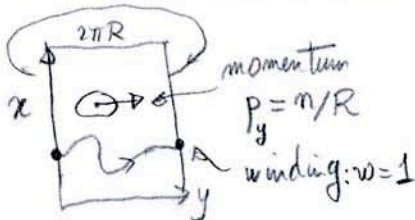 2πR
momentum
x
p_y = n/R
winding: w=1
y